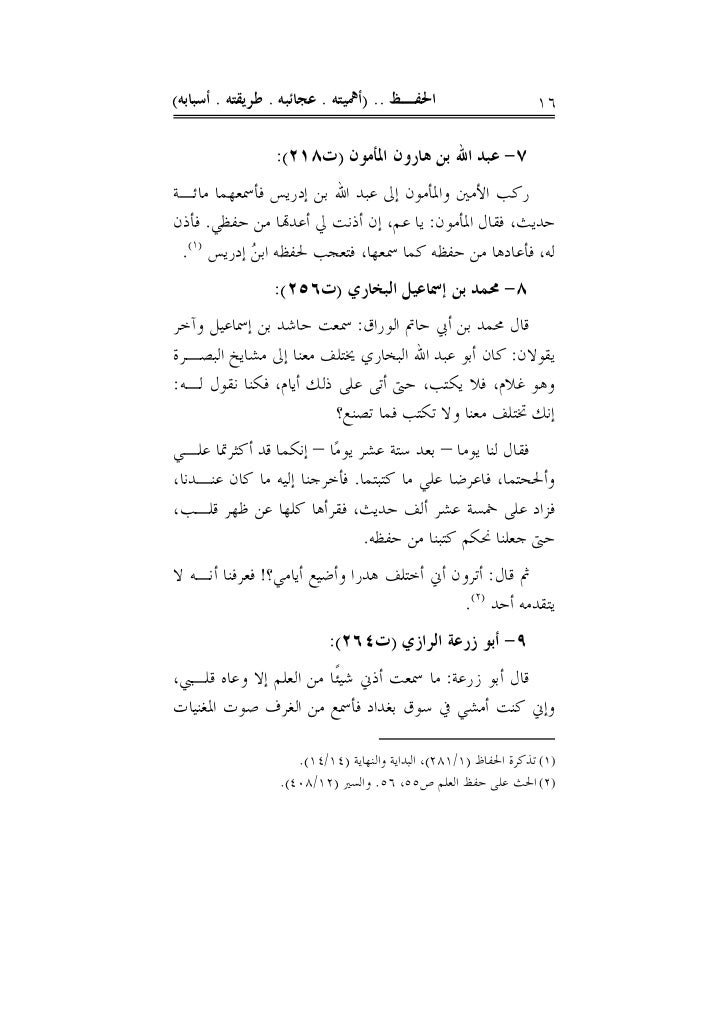 ١٦ الحفـــظ .. (أهميته . عجائبه . طريقته . أسبابه)
٧– عبد الله بن هارون المأمون (ت٢١٨):
ركب الأمين والمأمون إلى عبد الله بن إدريس فأسمعهما مائـــة
حديث، فقال المأمون: يا عم، إن أذنت لي أعدتها من حفظي. فأذن
له، فأعادها من حفظه كما سمعها، فتعجب لحفظه ابنُ إدريس (١).
٨– محمد بن إسماعيل البخاري (ت٢٥٦):
قال محمد بن أبي حاتم الوراق: سمعت حاشد بن إسماعيل وآخر
يقولان: كان أبو عبد الله البخاري يختلف معنا إلى مشايخ البصـــرة
وهو غلام، فلا يكتب، حتى أتى على ذلك أيام، فكنا نقول لـــه:
إنك تختلف معنا ولا تكتب فما تصنع؟
فقال لنا يوما – بعد ستة عشر يومًا – إنكما قد أكثرتما علـــي
وألححتما، فاعرضا علي ما كتبتما. فأخرجنا إليه ما كان عنـــدنا،
فزاد على خمسة عشر ألف حديث، فقرأها كلها عن ظهر قلـــب،
حتى جعلنا نحكم كتبنا من حفظه.
ثم قال: أترون أني أختلف هدرا وأضيع أيامي؟! فعرفنا أنـــه لا
يتقدمه أحد (٢).
٩– أبو زرعة الرازي (ت٢٦٤):
قال أبو زرعة: ما سمعت أذني شيئًا من العلم إلا وعاه قلـــبي،
وإني كنت أمشي في سوق بغداد فأسمع من الغرف صوت المغنيات
(١) تذكرة الحفاظ (٢٨١/١)، البداية والنهاية (١٤/١٤).
(٢) الحث على حفظ العلم ص٥٥، ٥٦. والسير (٤٠٨/١٢).